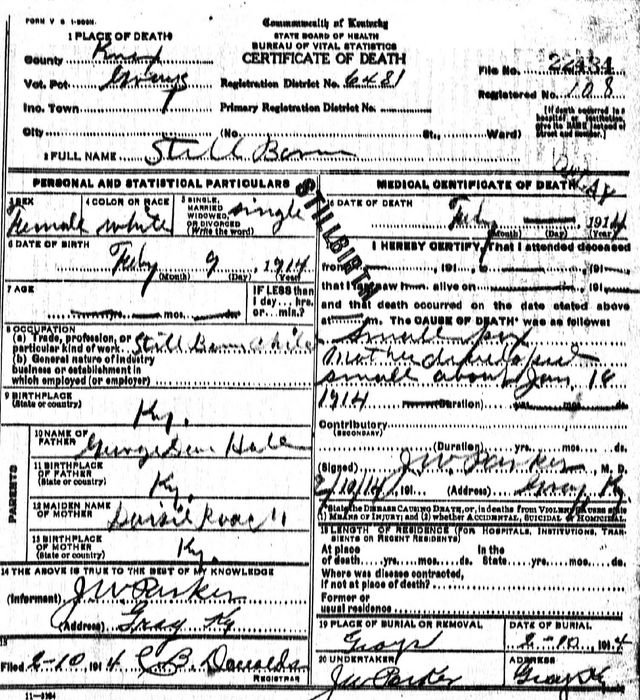 FORM V S 1-50M.
Commonwealth of Kentucky
STATE BOARD OF HEALTH
BUREAU OF VITAL STATISTICS
CERTIFICATE OF DEATH
1 PLACE OF DEATH
County Knox
Vot. Pct Grays
Ino. Town
City (No. St., Ward)
Registration District No. 6481
Primary Registration District No.
File No. 22434
Registered No. 108
[If death occurred in a hospital or institution, give its NAME instead of street and number.]
2 FULL NAME Still Born
PERSONAL AND STATISTICAL PARTICULARS
3 SEX Female
4 COLOR OR RACE white
5 SINGLE, MARRIED WIDOWED, OR DIVORCED (Write the word) single
6 DATE OF BIRTH
Feby 9, 1914
(Month) (Day) (Year)
7 AGE
yrs. mos. ds.
IF LESS than 1 day... hrs. or... min.?
8 OCCUPATION
(a) Trade, profession, or particular kind of work Still Born Child
(b) General nature of industry business or establishment in which employed (or employer)
9 BIRTHPLACE
(State or country) Ky.
PARENTS
10 NAME OF FATHER George Hale
11 BIRTHPLACE OF FATHER
(State or country) Ky.
12 MAIDEN NAME OF MOTHER
13 BIRTHPLACE OF MOTHER
(State or country) Ky.
14 THE ABOVE IS TRUE TO THE BEST OF MY KNOWLEDGE
(Informant) J W Parker
(Address) Gray Ky
15
Filed 2-10 1914 C B Donalds
REGISTRAR
11-3184
STILLBIRTH
MEDICAL CERTIFICATE OF DEATH
DATE OF DEATH
Feby 1914
(Month) (Day) (Year)
I HEREBY CERTIFY, That I attended deceased
from 191 to 191
that I last saw h alive on 191
and that death occurred on the date stated above
at m. The CAUSE OF DEATH* was as follows
Small pox
Mother
small about Jan. 18
1914 (Duration) yrs. mos. ds.
Contributory
(SECONDARY)
(Duration) yrs. mos. ds.
(Signed) J W Parker, M. D.
2/10/14, 191 (Address) Gray Ky.
*State the DISEASE CAUSING DEATH, or, in deaths from VIOLENT CAUSES state (1) MEANS OF INJURY; and (2) whether ACCIDENTAL, SUICIDAL or HOMICIDAL.
18 LENGTH OF RESIDENCE (FOR HOSPITALS, INSTITUTIONS, TRANSIENTS OR RECENT RESIDENTS)
At place of death yrs. mos. ds. In the State yrs. mos. ds.
Where was disease contracted, if not at place of death?
Former or usual residence
19 PLACE OF BURIAL OR REMOVAL
Grays
DATE OF BURIAL
2-10 1914
20 UNDERTAKER
J W Parker
ADDRESS
Gray Ky